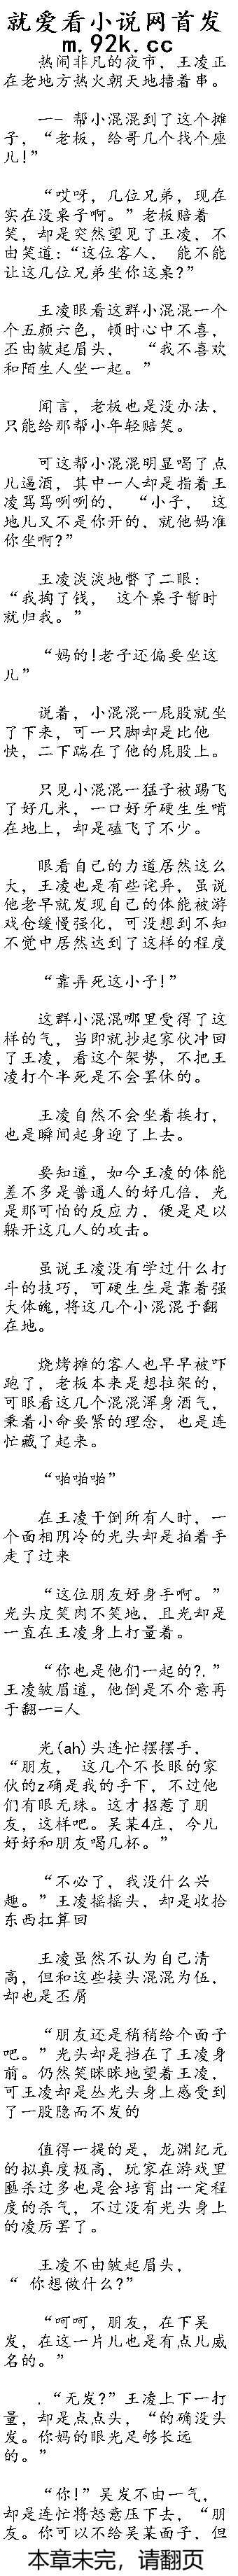 就爱看小说网首发
m.92k.cc
热闹非凡的夜市，王凌正
在老地方热火朝天地撸着串。
一- 帮小混混到了这个摊
子，“老板，给哥几个找个座
儿！”
“哎呀，几位兄弟，现在
实在没桌子啊。”老板赔着
笑，却是突然望见了王凌，不
由笑道：“这位客人， 能不能
让这几位兄弟坐你这桌？”
王凌眼看这群小混混一个
个五颜六色，顿时心中不喜，
丕由皱起眉头， “我不喜欢
和陌生人坐一起。”
闻言，老板也是没办法，
只能给那帮小年轻赔笑。
可这帮小混混明显喝了点
儿逼酒，其中一人却是指着王
凌骂骂咧咧的， “小子， 这
地儿又不是你开的，就他妈准
你坐啊？”
王凌淡淡地瞥了二眼：
“我掏了钱， 这个桌子暂时
就归我。”
“妈的！老子还偏要坐这
儿”
说着，小混混一屁股就坐
了下来，可一只脚却是比他
快，二下踹在了他的屁股上。
只见小混混一猛子被踢飞
了好几米，一口好牙硬生生啃
在地上，却是磕飞了不少。
眼看自己的力道居然这么
大，王凌也是有些诧异，虽说
他老早就发现自己的体能被游
戏仓缓慢强化，可没想到不知
不觉中居然达到了这样的程度
“靠弄死这小子！”
这群小混混哪里受得了这
样的气，当即就抄起家伙冲回
了王凌，看这个架势，不把王
凌打个半死是不会罢休的。
王凌自然不会坐着挨打，
也是瞬间起身迎了上去。
要知道，如今王凌的体能
差不多是普通人的好几倍，光
是那可怕的反应力，便是足以
躲开这几人的攻击。
虽说王凌没有学过什么打
斗的技巧，可硬生生是靠着强
大体魄,将这几个小混混于翻
在地。
烧烤摊的客人也早早被吓
跑了，老板本来是想拉架的，
可眼看这几个混混浑身酒气，
秉着小命要紧的理念，也是连
忙藏了起来。
“啪啪啪”
在王凌干倒所有人时，一
个面相阴冷的光头却是拍着手
走了过来
“这位朋友好身手啊。”
光头皮笑肉不笑地，且光却是
一直在王凌身上打量着。
“你也是他们一起的？.”
王凌皱眉道，他倒是不介意再
于翻一=人
光(ah)头连忙摆摆手，
“朋友， 这几个不长眼的家
伙的z确是我的手下，不过他
们有眼无珠。这才招惹了朋
友，这样吧。吴某4庄，今儿
好好和朋友喝几杯。”
“不必了，我没什么兴
趣。”王凌摇摇头，却是收拾
东西扛算回
王凌虽然不认为自己清
高，但和这些接头混混为伍，
却也是丕屑
“朋友还是稍稍给个面子
吧。”光头却是挡在了王凌身
前。仍然笑眯眯地望着王凌，
可王凌却是丛光头身上感受到
了一股隐而不发的
值得一提的是，龙渊纪元
的拟真度极高，玩家在游戏里
匭杀过多也是会培育出一定程
度的杀气，不过没有光头身上
的凌厉罢了。
王凌不由皱起眉头，
“ 你想做什么？”
“呵呵，朋友，在下吴
发，在这一片儿也是有点儿威
名的。”
.“无发？”王凌上下一打
量，却是点点头，“的确没头
发。你妈的眼光足够长远
的。”
“你！”吴发不由一气，
却是连忙将怒意压下去，“朋
友。你可以不给吴某面子，但
本章未完，请翻页